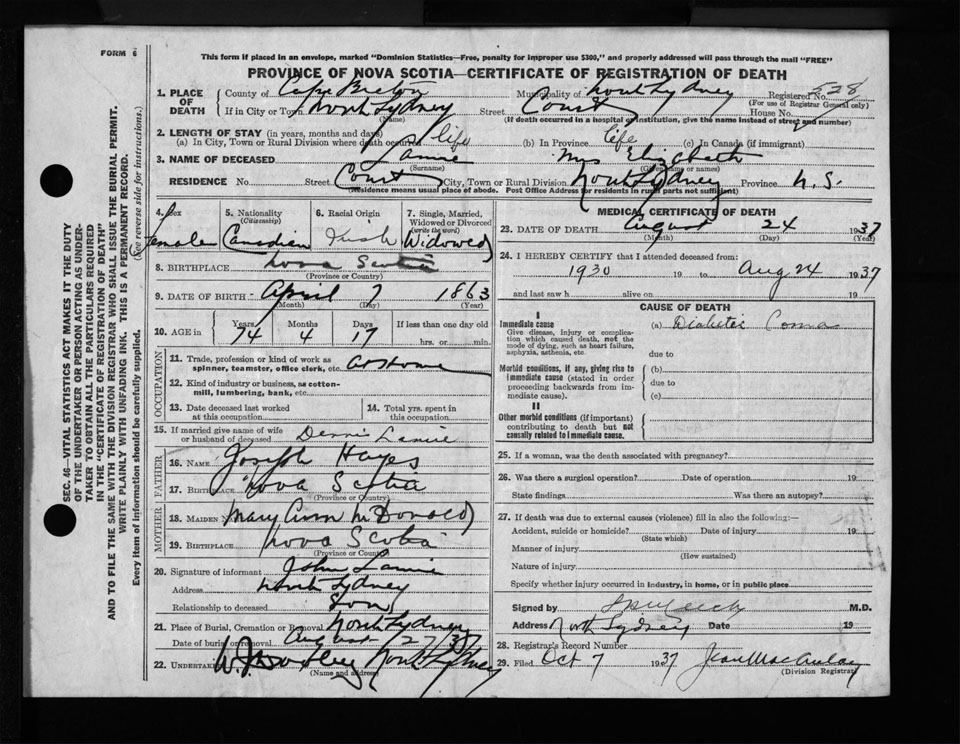 FORM 6
This form if placed in an envelope, marked "Dominion Statistics—Free, penalty for improper use $300," and properly addressed will pass through the mail "FREE"
PROVINCE OF NOVA SCOTIA—CERTIFICATE OF REGISTRATION OF DEATH
1. PLACE OF DEATH County of Cape Breton Municipality of North Sydney Registered No. 528
(For use of Registrar General only)
If in City or Town North Sydney Street Court House No.
(Name) (If death occurred in a hospital or institution, give the name instead of street and number)
2. LENGTH OF STAY (in years, months and days)
(a) In City, Town or Rural Division where death occurred life (b) In Province life (c) In Canada (if immigrant)
3. NAME OF DECEASED Lamie Mrs Elizabeth
(Surname) (Given name or names)
RESIDENCE No. Street Court City, Town or Rural Division North Sydney Province N.S.
(Residence means usual place of abode. Post Office Address for residents in rural parts not sufficient)
4. Sex female
5. Nationality (Citizenship) Canadian
6. Racial Origin Irish
7. Single, Married, Widowed or Divorced (write the word) Widowed
8. BIRTHPLACE Nova Scotia
(Province or Country)
9. DATE OF BIRTH April 7 1863
(Month) (Day) (Year)
10. AGE in Years 74 Months 4 Days 17 If less than one day old hrs. or min.
OCCUPATION
11. Trade, profession or kind of work as spinner, teamster, office clerk, etc. At Home
12. Kind of industry or business, as cotton-mill, lumbering, bank, etc.
13. Date deceased last worked at this occupation
14. Total yrs. spent in this occupation
15. If married give name of wife or husband of deceased Dennis Lamie
FATHER
16. NAME Joseph Hayes
17. BIRTHPLACE Nova Scotia
(Province or Country)
MOTHER
18. MAIDEN NAME Mary Ann McDonald
19. BIRTHPLACE Nova Scotia
(Province or Country)
20. Signature of informant John Lamie
Address North Sydney
Relationship to deceased Son
21. Place of Burial, Cremation or Removal North Sydney
Date of burial or removal August 27/37
22. UNDERTAKER North Sydney
(Name and address)
MEDICAL CERTIFICATE OF DEATH
23. DATE OF DEATH August 24 1937
(Month) (Day) (Year)
24. I HEREBY CERTIFY that I attended deceased from:
1930 19 to Aug 24 1937
and last saw h alive on 19
CAUSE OF DEATH
I
Immediate cause
Give disease, injury or complication which caused death, not the mode of dying, such as heart failure, asphyxia, asthenia, etc.
(a) Diabetic Coma
due to
Morbid conditions, if any, giving rise to immediate cause (stated in order proceeding backwards from immediate cause).
(b)
due to
(c)
II
Other morbid conditions (if important) contributing to death but not causally related to immediate cause.
25. If a woman, was the death associated with pregnancy?
26. Was there a surgical operation? Date of operation 19
State findings Was there an autopsy?
27. If death was due to external causes (violence) fill in also the following:—
Accident, suicide or homicide? Date of injury 19
(State which)
Manner of injury
(How sustained)
Nature of injury
Specify whether injury occurred in industry, in home, or in public place
Signed by M.D.
Address North Sydney Date 19
28. Registrar's Record Number
29. Filed Oct 7 1937 Jean MacAulay
(Division Registrar)
SEC. 46—VITAL STATISTICS ACT MAKES IT THE DUTY
OF THE UNDERTAKER OR PERSON ACTING AS UNDER-
TAKER TO OBTAIN ALL THE PARTICULARS REQUIRED
IN THE "CERTIFICATE OF REGISTRATION OF DEATH"
AND TO FILE THE SAME WITH THE DIVISION REGISTRAR WHO SHALL ISSUE THE BURIAL PERMIT.
WRITE PLAINLY WITH UNFADING INK. THIS IS A PERMANENT RECORD.
Every item of information should be carefully supplied. (See reverse side for instructions.)